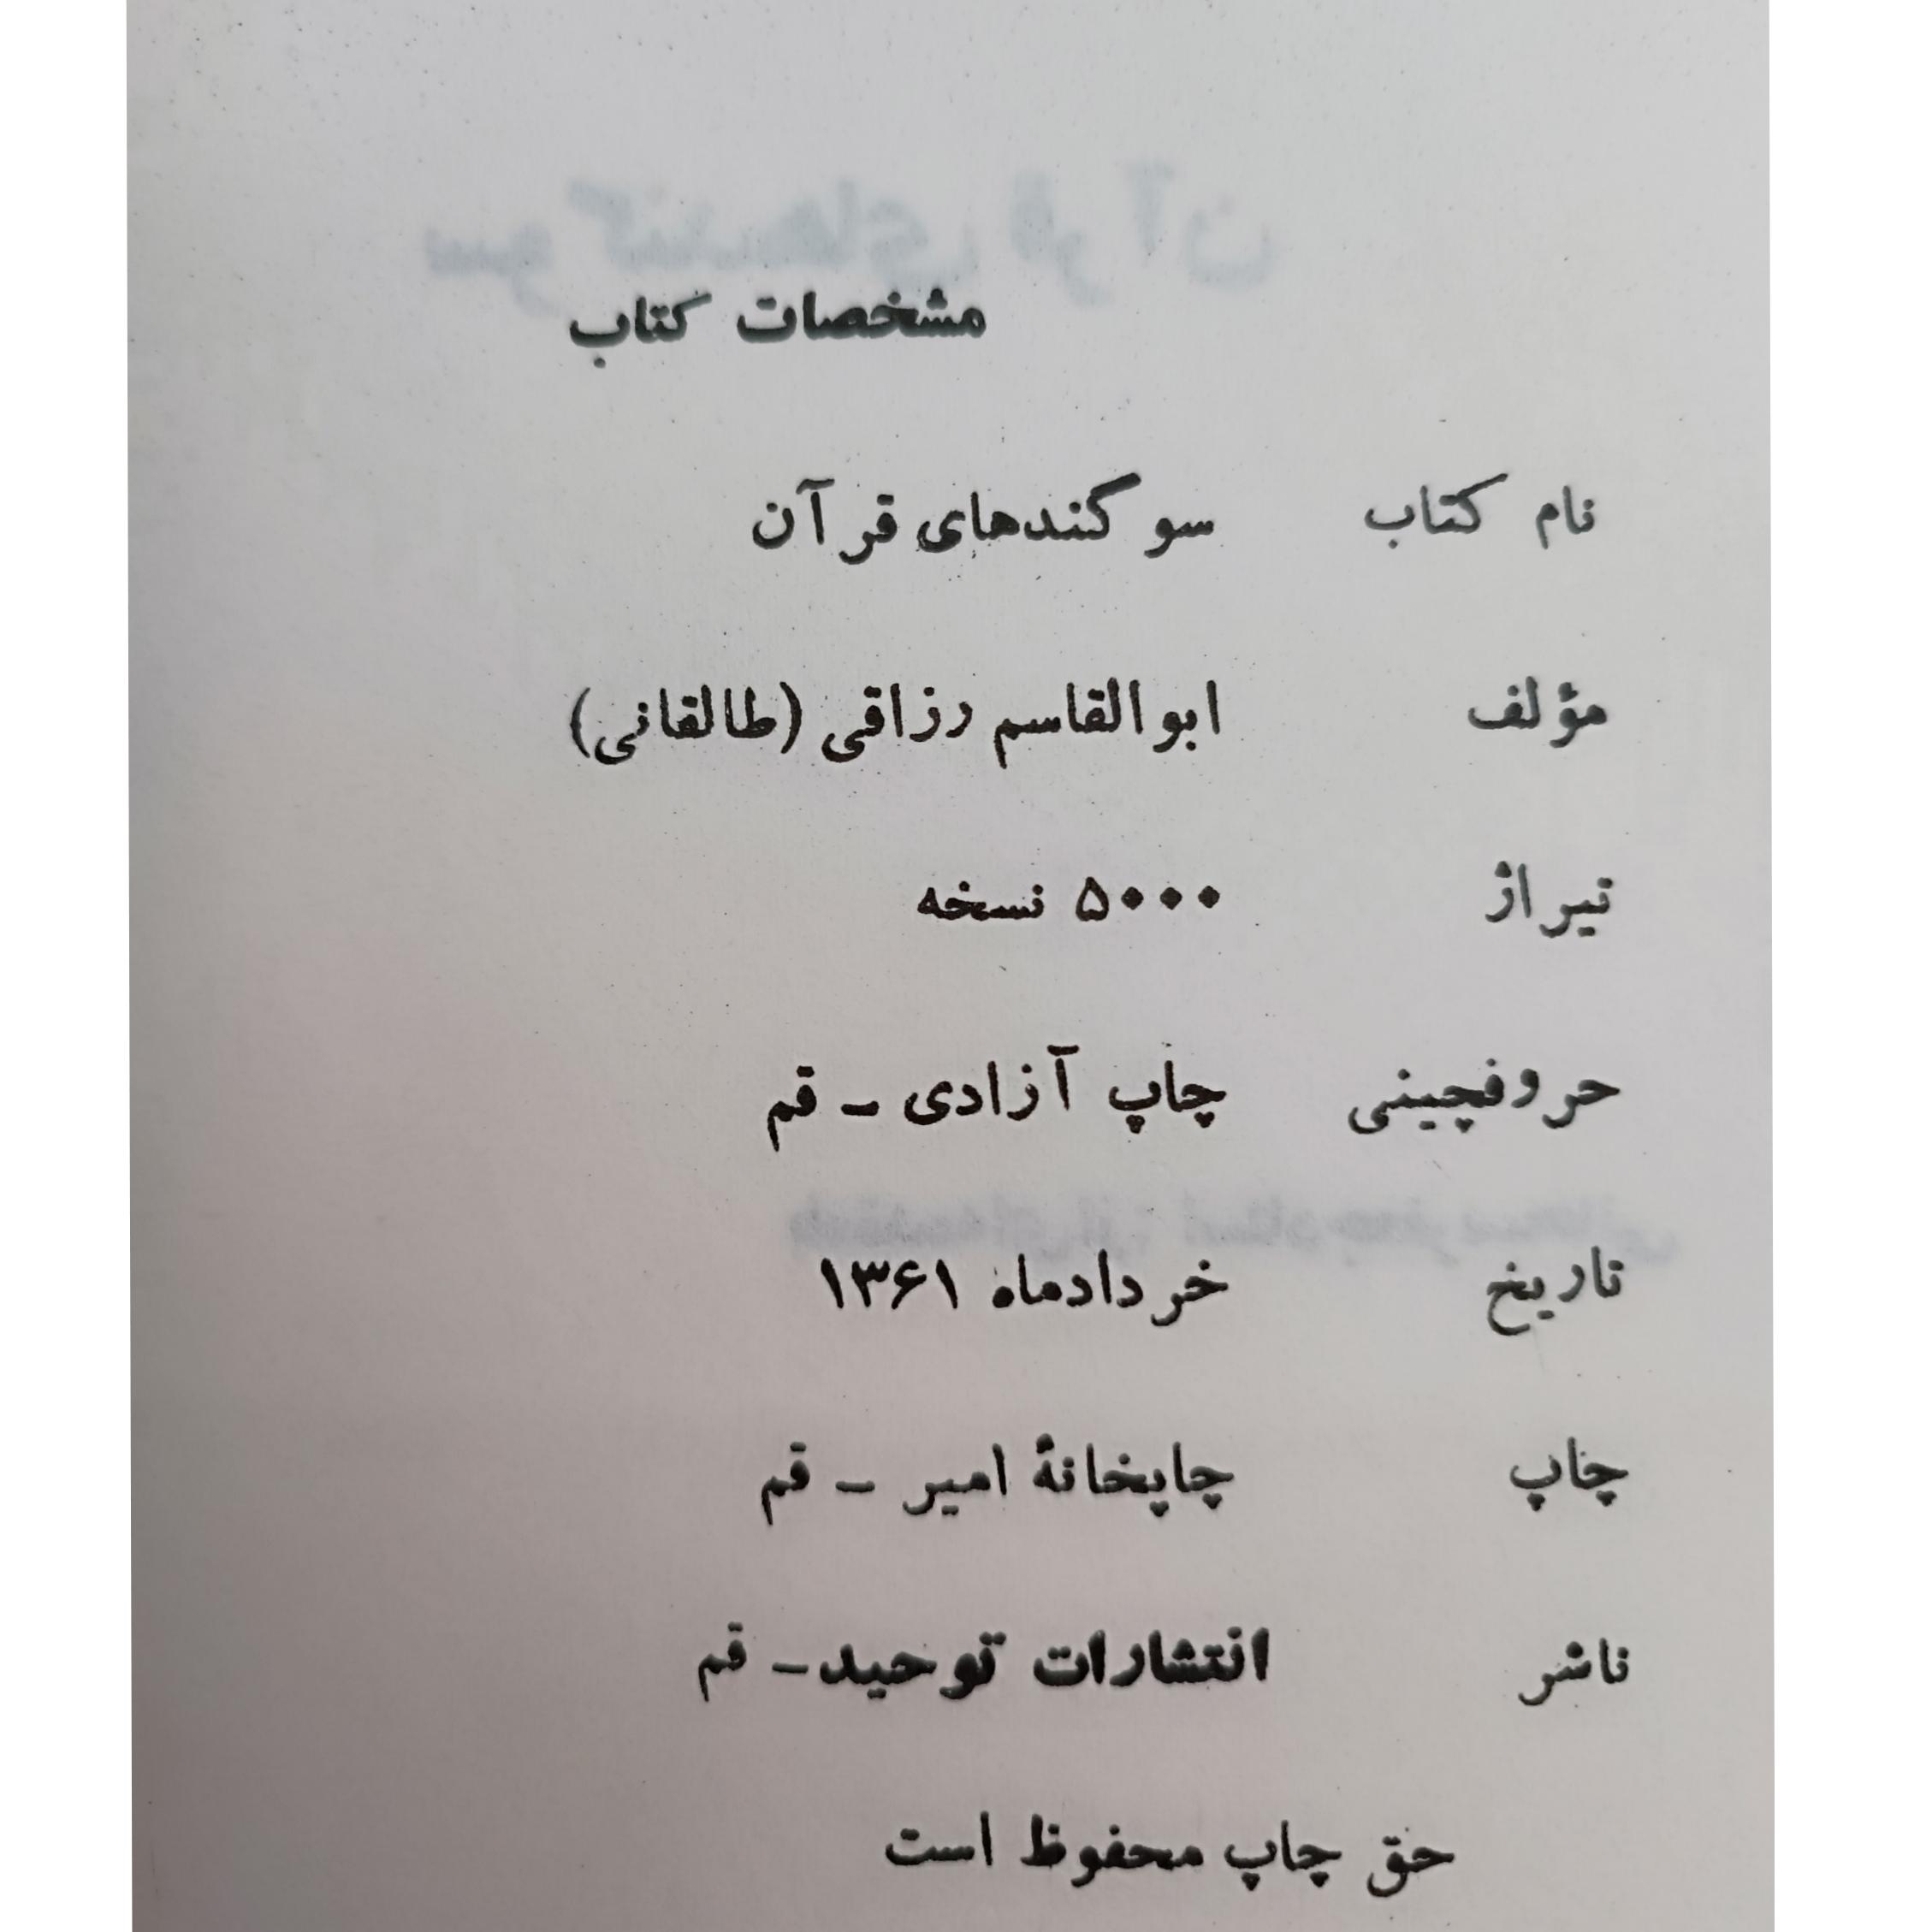 مشخصات کتاب
نام کتاب سوگندهای قرآن
مؤلف ابوالقاسم رزاقی (طالقانی)
تیراژ ۵۰۰۰ نسخه
حروفچینی چاپ آزادی - قم
تاریخ خردادماه ۱۳۶۱
چاپ چاپخانهٔ امیر - قم
ناشر انتشارات توحید - قم
حق چاپ محفوظ است